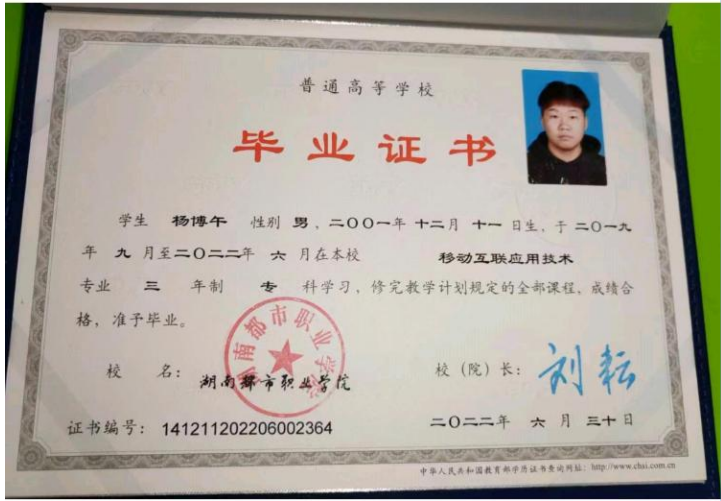 普通高等学校
毕业证书
学生 杨博午 性别 男，二〇〇一年 十二月 十一 日生，于 二〇一九
年 九 月至二〇二二年 六 月在本校 移动互联应用技术
专业 三 年制 专 科学习，修完教学计划规定的全部课程，成绩合
格，准予毕业。
湖南都市职业学院
校 名：湖南都市职业学院 校（院）长：刘耘
证书编号：141211202206002364 二〇二二年 六 月 三十日
中华人民共和国教育部学历证书查询网址：http://www.chsi.com.cn